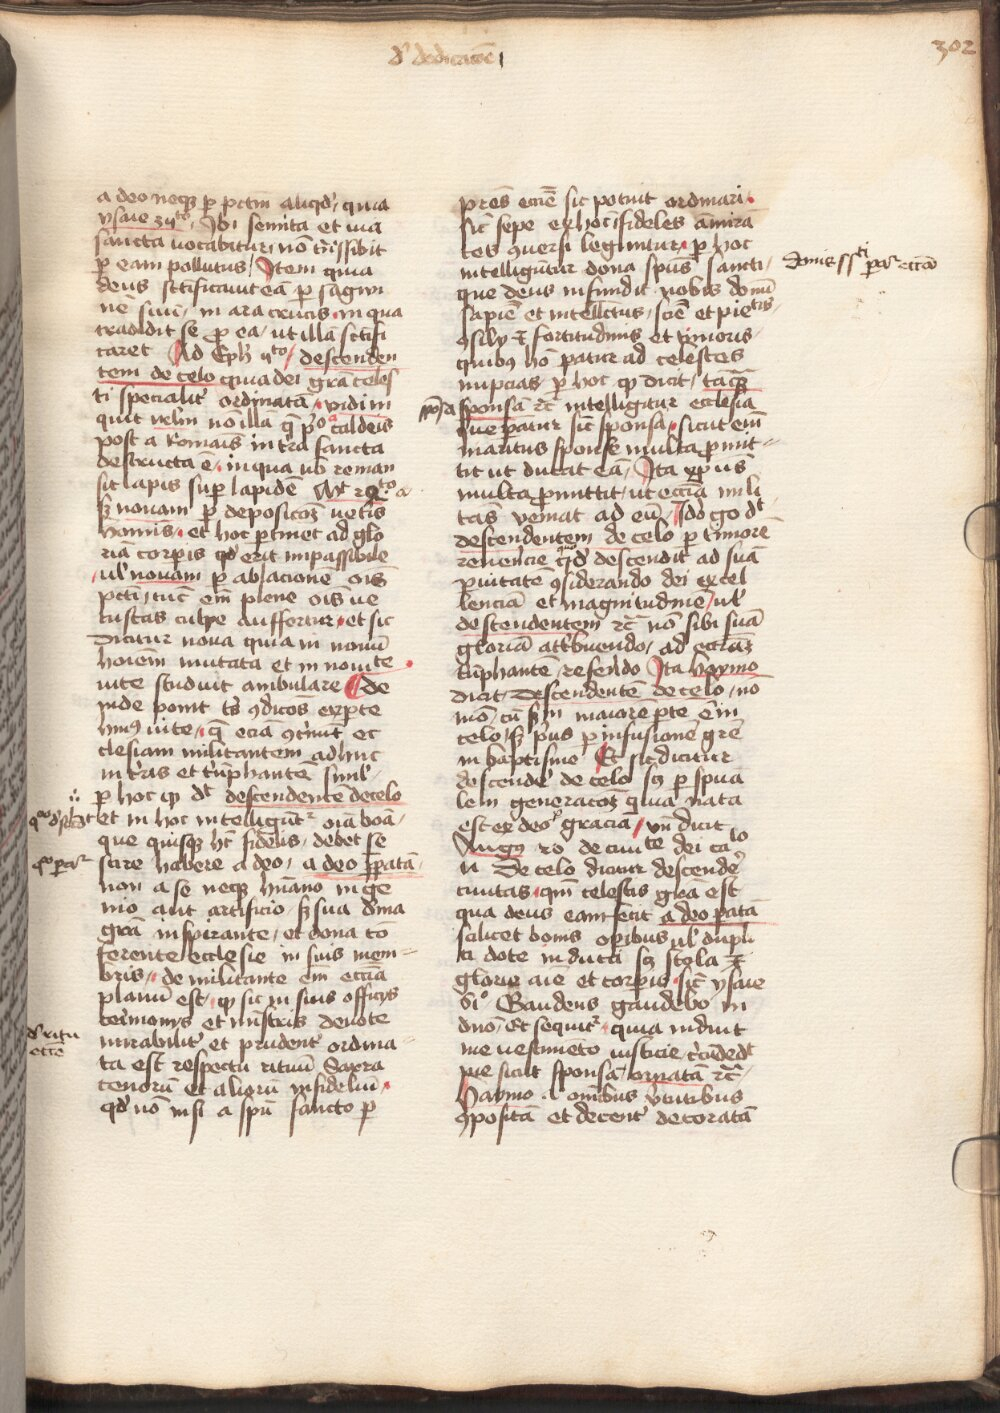 dͬ dedicacōe
302
a deo neqꝫ ꝑ pctm̄ aliqd', quia
ysaie 35to, Ibi semita et via
sancta vocabitur, nō tn̄ssibit
ꝑ eam pollutus, Item quia
deus sctificauit eā ꝑ sāgwi
nē suū, in ara crucis, in qua
tradidit se ꝓ ea, ut illā sctifi
caret Ad Eph 5to, descenden
tem de celo quia dei grā celes
ti specialit' ordinatā, vidi in
quit velim nō illā q̄ pͦ a caldeis
post a Romais in t̄ra sancta
destructa ē, in qua nō reman
sit lapis sup lapidē
sꝫ nouam ꝑ deposicōꝫ vetis
hominis, et hoc ptinet ad glo
riā corpis qd' erit impassibile
ul' nouam ꝑ ablacionē oīs
pcti, tūc em̄ plene oīs ve
tustas culpe auffertur, et sic
dicitur noua quia in nouū
hoiem mutata et in nouite
vite studuit ambulare De
inde ponit ꝯdicōes ex pte
huiꝯ vite, q̄ eciā ꝯtinēt ec
clesiam militantem adhuc
in t̄ris et t̄uphantē simul,
ꝑ hoc qꝫ dt descendentē de celo
et in hoc intelligūtr oīa boā,
que quisqꝫ ht fidelis, debet se
scire habere a deo, a deo ꝑatā,
ꝓ ꝑatr
non a se neqꝫ hūano inge
nio aut artificio, sꝫ sua dīna
grā inspirante, et dona cō
ferente ecclesie in suis mem=
bris, de militante em̄ ecciā
planū est, qꝫ sic in suis officijs
cerimonijs et mīstris deuote
dͬ ritu
eccē
mirabilit' et prudent' ordina=
ta est respectu rituū Sarra
cenorū et aliorū infideliū,
qd' nō nisi a spū sancto ꝑ
pres eccē sic potuit ordinari.
sic sepe ex hoc ifideles āmira
tes ꝯuersi leguntur, ꝑ hoc
intelligūtur dona spūs sancti,
donis ssti ꝑatr eccā
que deus infundit nobis donū
sapiē et intellctus, sciē et pietis,
ꝯsily et fortitudinis et timoris,
quibꝯ hō patur ad celestes
nupcias, ꝑ hoc qꝫ dicit, tāqꝫ
sponsā rc̄ intelligitur ecclesia
que patur sic sponsa, sicut em̄
maritus sponse multa ꝓmit=
tit ut ducat eā, Ita xpūs
multa ꝓmittit, ut ecciā mili
tās veniat ad eū, Ido go dt
descendentem de celo ꝑ timorē
reuencie descendit ad suā
ꝑuitatē ꝯsiderando dei excel
lenciā et magnitudinē, ul'
descendentem rc̄ nō sibi suā
gloriā attbuendo, ad ecciāꝫ
t̄uphantē refendo Ita haymo
dicit, Descendentē de celo, nō
mō cū sꝫm maiorē ptē ē in
celo, sꝫ pus ꝑ infusionē grē
in baptismo Et sic dicitur
descende' de celo sꝫ ꝑ spua
lem generacōꝫ quia nata
est ex deo ꝑ graciā, vn̄ dicit
Augꝯ 20 de ciuite dei caͦ
De celo dicitur descende'
ciuitas, qm̄ celestis grā est
qua deus eam fecit a deo patā
scilicet bonis opibus ul' dupli
ci dote induta sꝫ stola
glorie aīe et corpis, sic ysaie
61ͦ Gaudens gaudebo in
dnō, Et sequitr, quia induit
me vestimēto iusticie,
me sicut sponsā, ornatā rc̄
Haymo omībus v̄tutibus
ꝯpositā et decent' decoratā